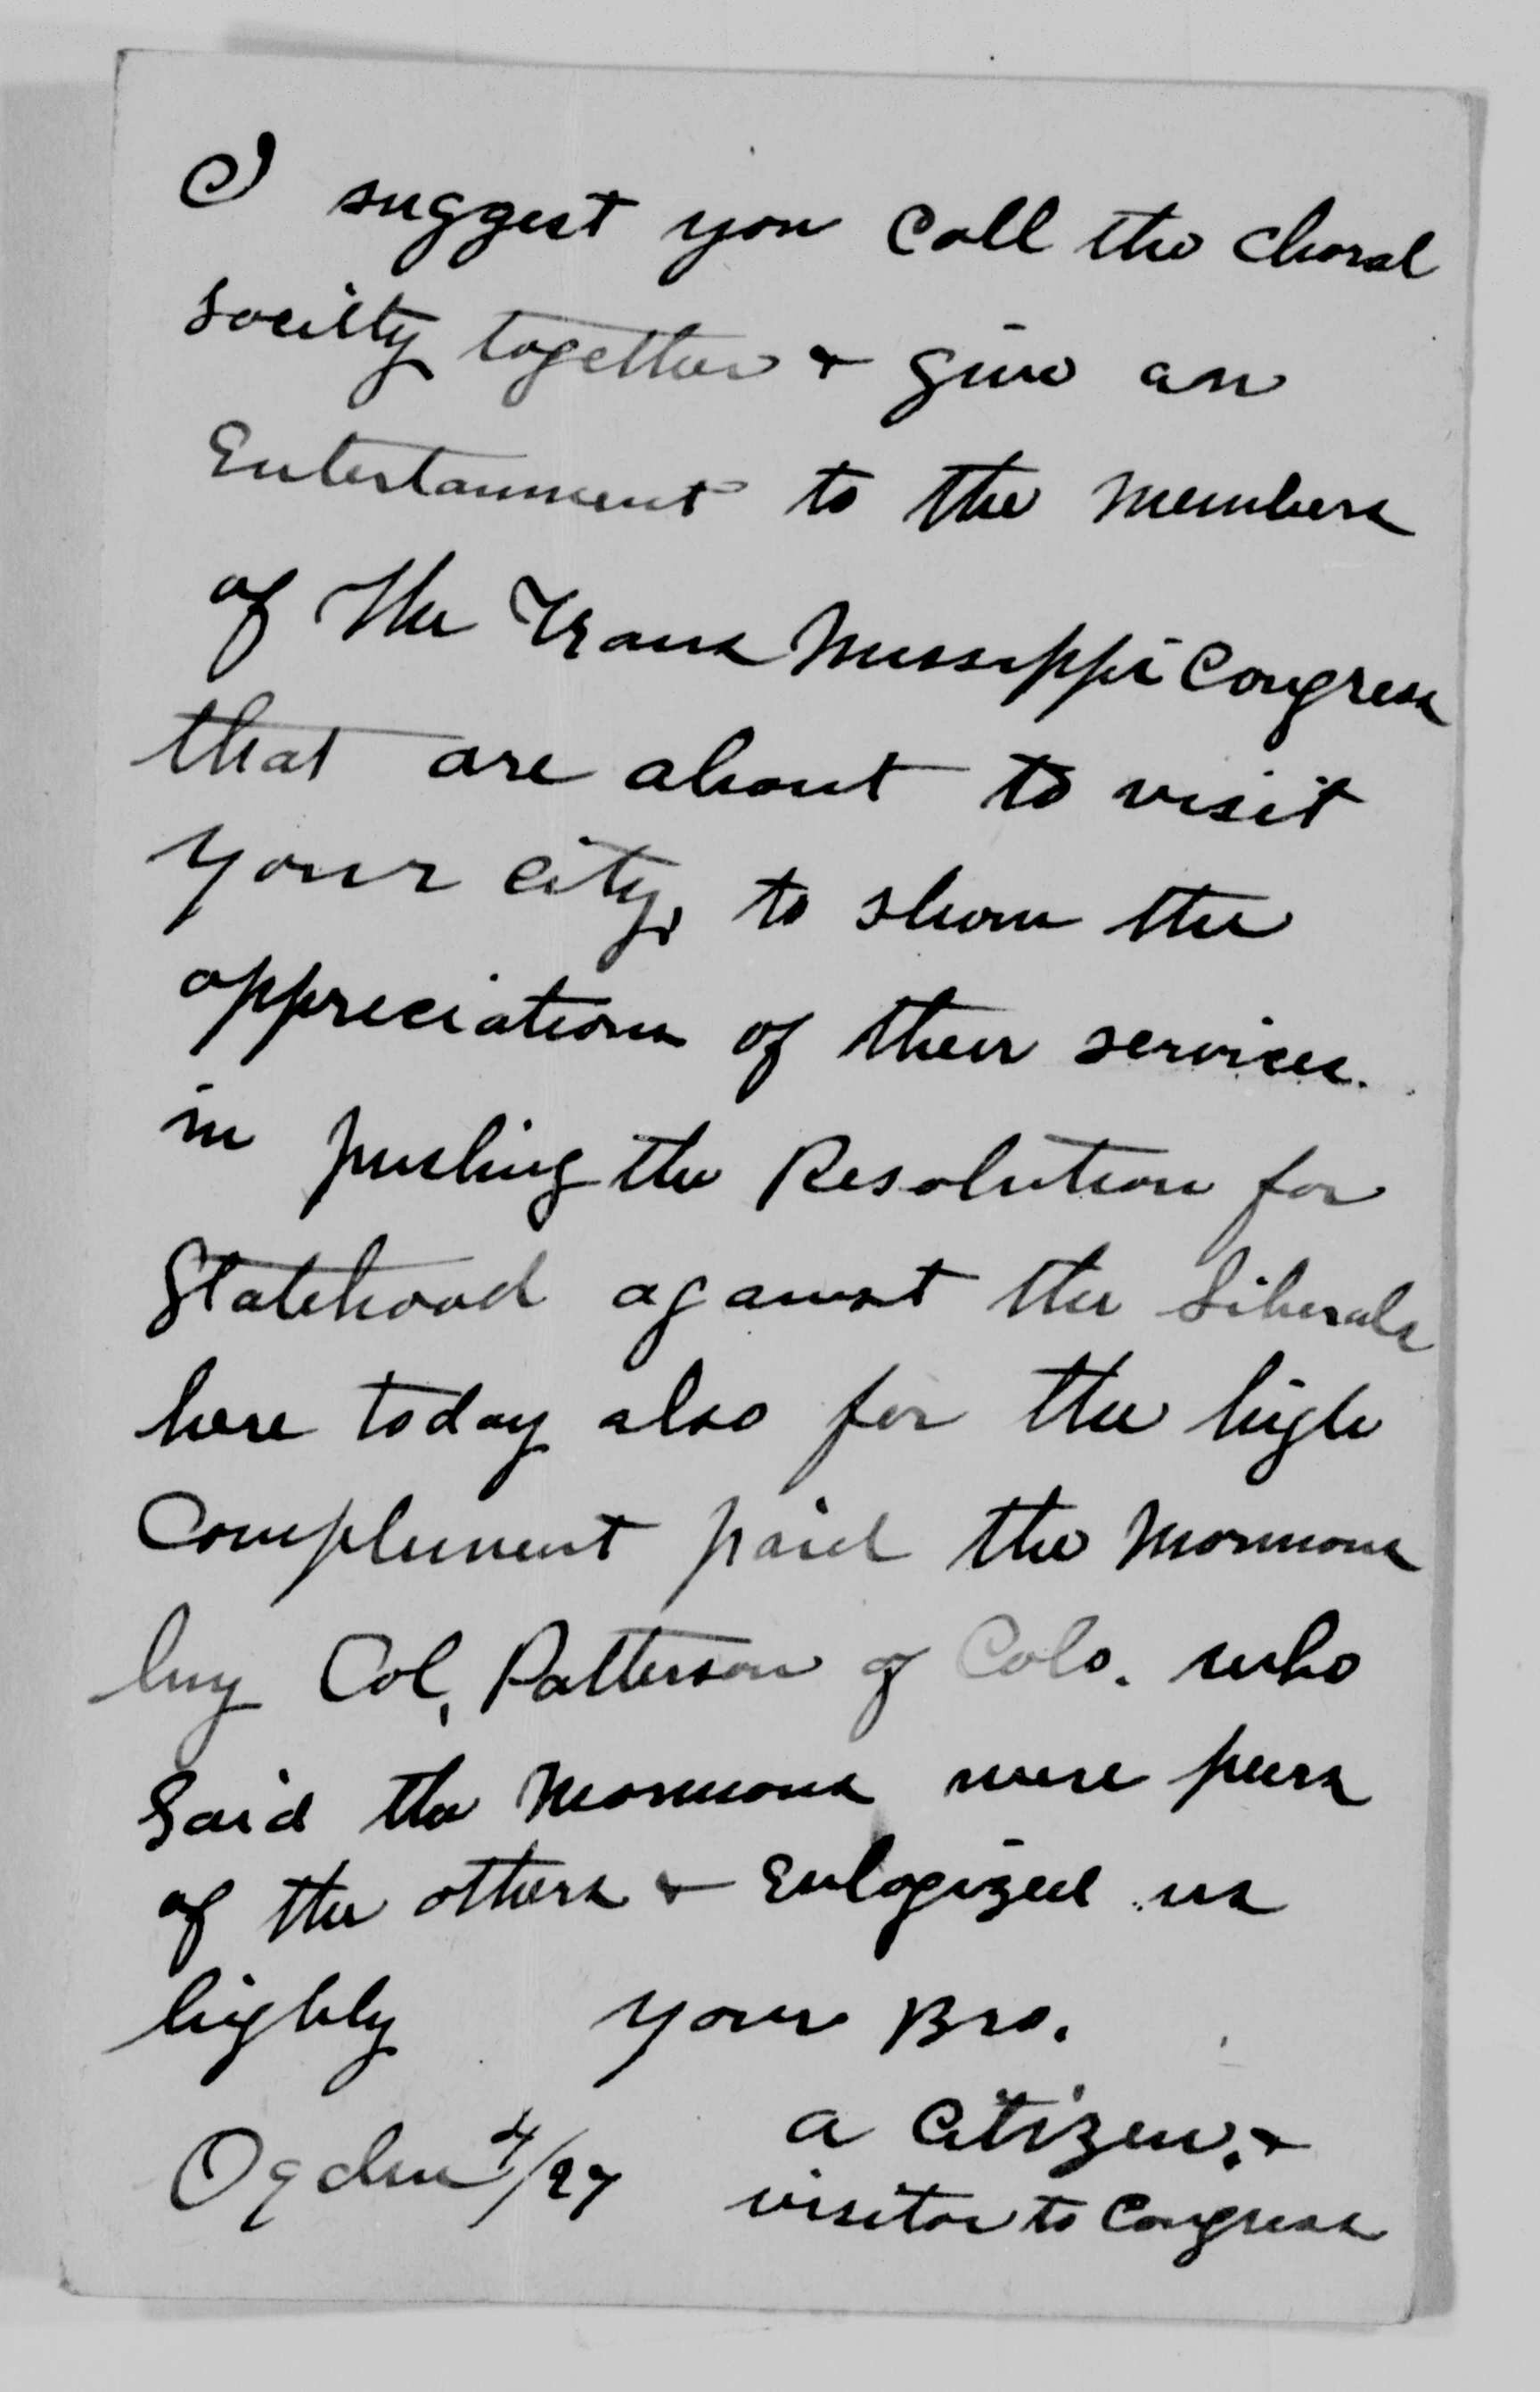 I suggest you call the choral
society together & give an
Entertainment to the members
of the Trans Missippi Congress
that are about to visit
your city, to show the
appreciation of their services.
in pushing the Resolution for
Statehood against the Liberals
here today also for the high
Complement paid the Mormons
by Col. Patterson of Colo. who
said the Mormons were peers
of the others & Eulogized us
highly your Bro.
a Citizen. &
Ogden 4/27 visitor to Congress